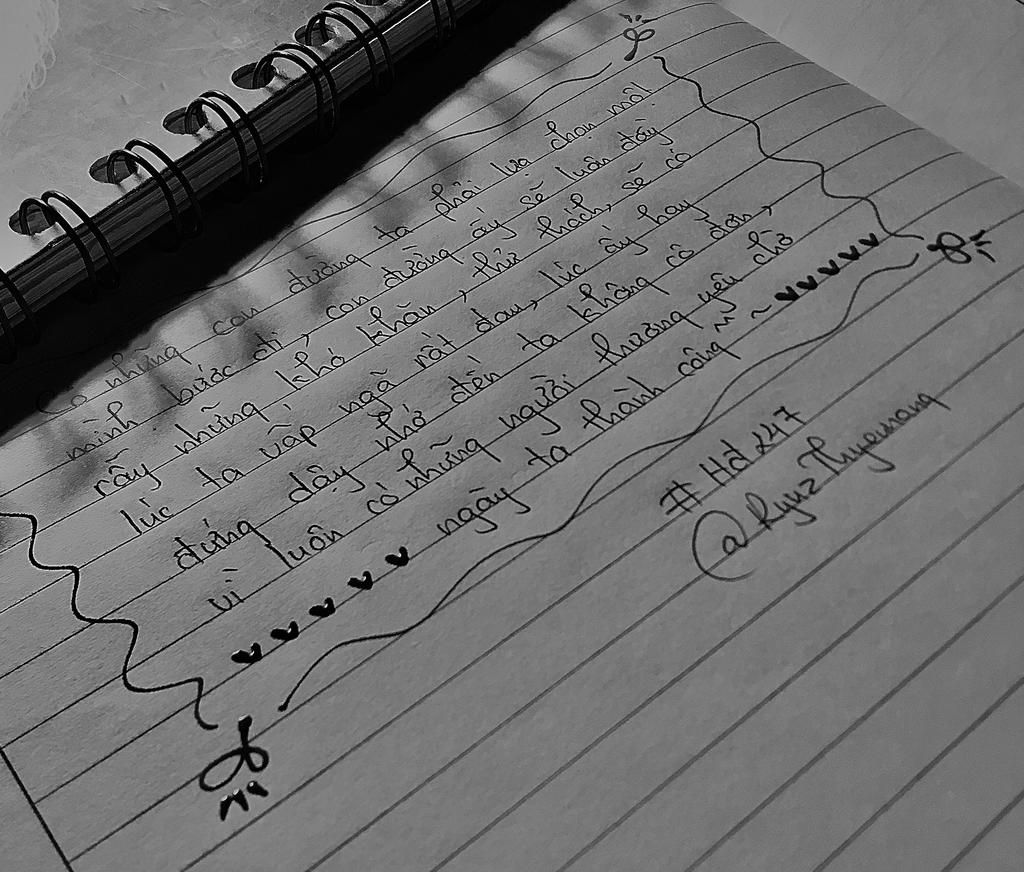 Có những con đường ta phải lựa chọn một
mình bước đi, con đường ấy sẽ luôn đầy
rẫy những khó khăn, thử thách, sẽ có
lúc ta vấp ngã rất đau, lúc ấy hay
đứng dậy nhớ đến ta không cô đơn,
vì luôn có những người thương yêu chờ
ngày ta thành công ~ ~
#Hd247
@RyuzThyeunang